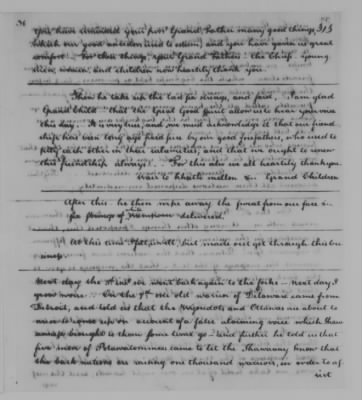 36
315
You have reminded your poor Grand Father many good things,
which our good ancestors used to observe, and you have given us great
comfort. For these things, your Grand Fathers the Chiefs, Young
Men, women, and children now heartily thank you.
Then he takes up the last six strings, and said, I am glad
Grand Child that the Great Good Spirit allows us hear your voice
this day. It is very true, and we must acknowledge it that our friend
ship has been long ago fixed sure by our good forefathers, who used to
pity each other in their calamities, and that we ought to renew
this friendship always. For this also we all heartily thank you.
Grand Children
After this he then wipe away the sweat from our face &c
Six strings of Wampum delivered.
At this time but made out get through this bu
siness.
Next day the we went back again to the forks. Next day I
grows worse. On the 7th one old warrior of Delaware came from
Detroit, and told us that the Wyandots and Ottawas are about to
on account of a false alarming voice which them
brought to them some time ago. And further he told us that
five men of Potawatommees came to let the Shawany know that
the back nations are raising one thousand warriors, in order to as
sist